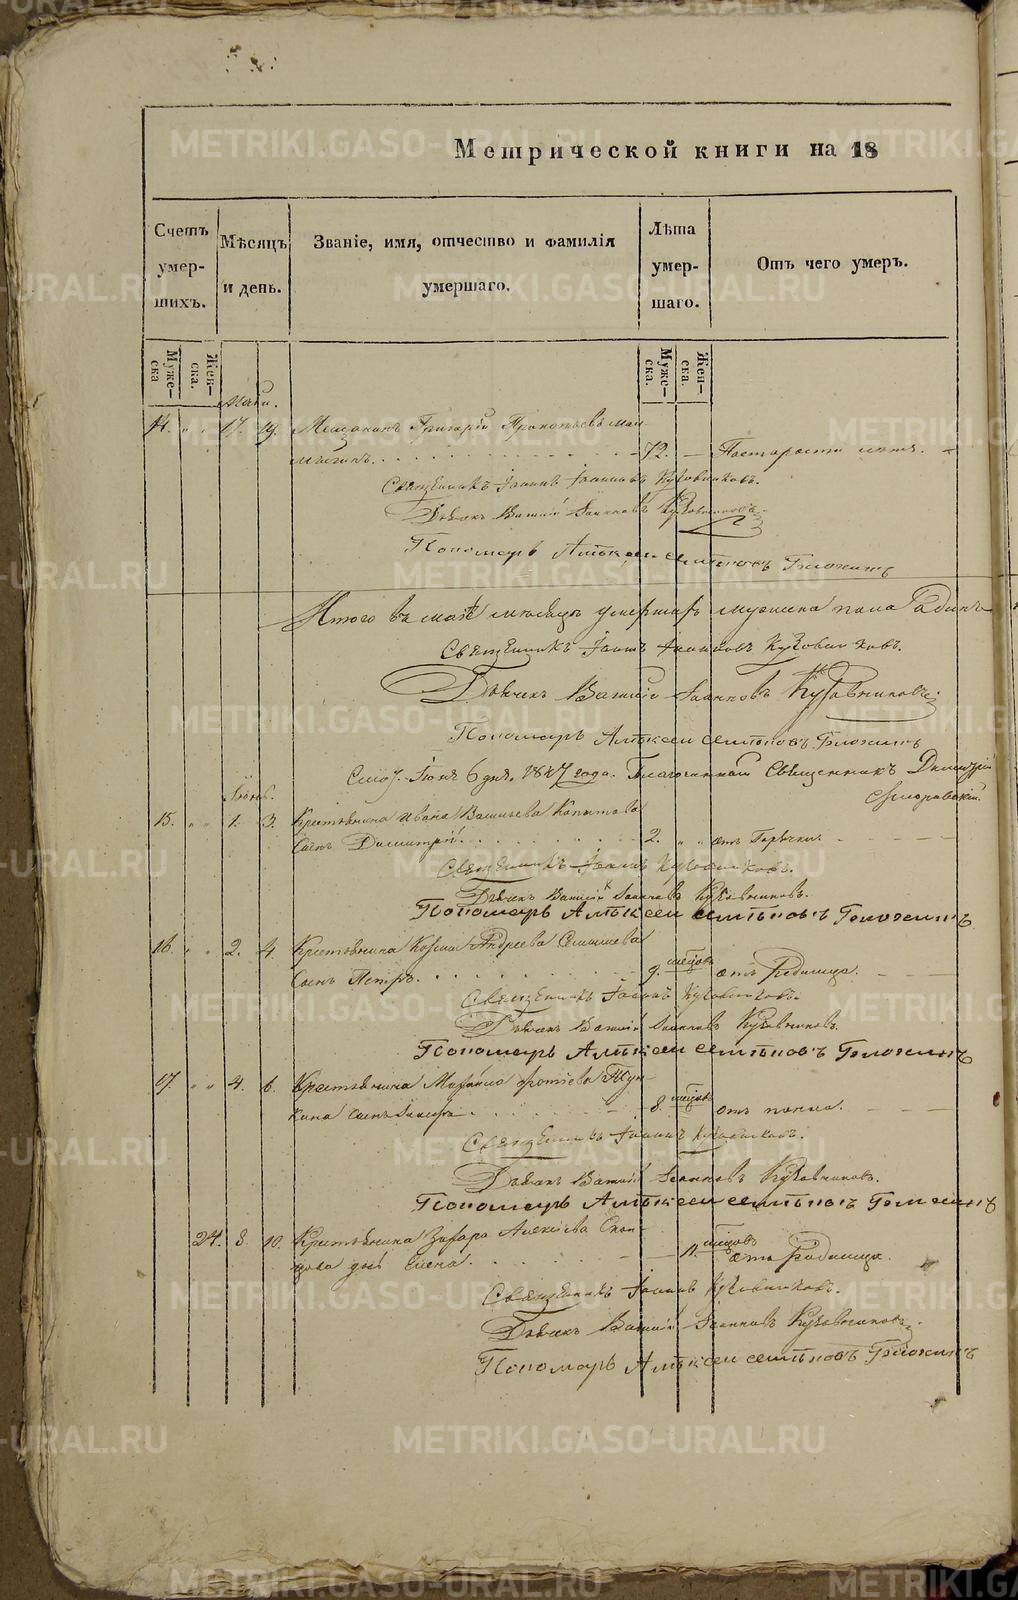 Метрической книги на 18
Счетъ умер- шихъ.
Мѣсяцъ и день.
Званіе, имя, отчество и фамилія умершаго.
Лѣта умер- шаго.
Отъ чего умеръ.
Муже- ска
Жен- ска.
Муже- ска.
Жен- ска.
Маій.
14. " " 17. 19. Мещанинъ Григорій Прокопьевъ
72. — По старости лѣтъ.
Священникъ Іоаннъ Іоанновъ Кузовниковъ.
Дьячекъ Василій Іоанновъ Кузовниковъ.
Пономарь Алѣксеи семѣновъ
Итого въ маѣ месяцѣ умершаго мужеска пола
Священникъ Іоаннъ Іоанновъ Кузовниковъ.
Дьячекъ Василій Іоанновъ Кузовниковъ.
Пономарь Алѣксеи семѣновъ
Іюня 6 дня. 1847 года. Благочинный Священникъ Димитрій
Іюнь.
15. " " 1. 3. Крестьянина Ивана Васильева Копытова
сынъ Димитрій. 2. " " отъ Горячки.
Священникъ Іоаннъ Кузовниковъ.
Дьячекъ Василій Іоанновъ Кузовниковъ.
Пономарь Алѣксеи семѣновъ
16. " " 2. 4. Крестьянина Козмы Андреева
сынъ Петръ. 9. отъ Родимца.
Священникъ Іоаннъ Кузовниковъ.
Дьячекъ Василій Іоанновъ Кузовниковъ.
Пономарь Алѣксеи семѣновъ
17. " " 4. 6. Крестьянина Михайла
сынъ 8. отъ поноса.
Священникъ Іоаннъ Кузовниковъ.
Дьячекъ Василій Іоанновъ Кузовниковъ.
Пономарь Алѣксеи семѣновъ
24. 8. 10. Крестьянина Захара Алексіева
дочь Елена. 11. отъ Родимца.
Священникъ Іоаннъ Кузовниковъ.
Дьячекъ Василій Іоанновъ Кузовниковъ.
Пономарь Алѣксеи семѣновъ
METRIKI.GASO-URAL.RU